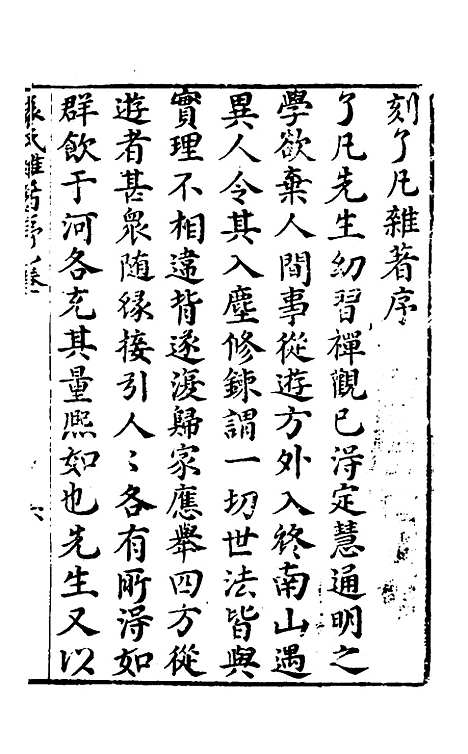 刻了凡雜著序
了凡先生幼習禪觀已淂定慧通明之
學欲棄人間事從遊方外入終南山遇
異人令其入塵修鍊謂一切世法皆與
實理不相違背遂復歸家應舉四方從
遊者甚眾随緣接引人〻各有所淂如
群飲于河各充其量熈如也先生又以